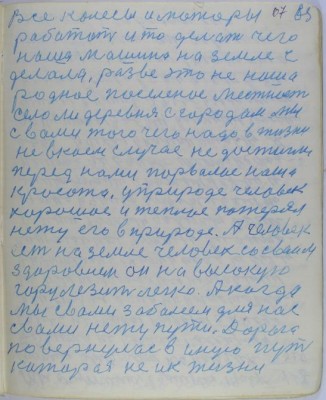 все колесы и маторы 07 85
работают и то делают чего
наша машина на земле с
делала, разве это не наша
родное поселение местност
село ли деревня с городам мы
с вами того чего надо в жизни
не в коем случае не достигли
перед нами порвалас наша
красота, у природе человек
хорошое и теплое потерял
нету его в природе. А человек
ест на земле человек со своим
здоровием он на высокую
гору лезит легко. А когда
мы с вами заболем для нас
с вами нету пути. Дорога
повернулас в иную пут
которая не ик жизни